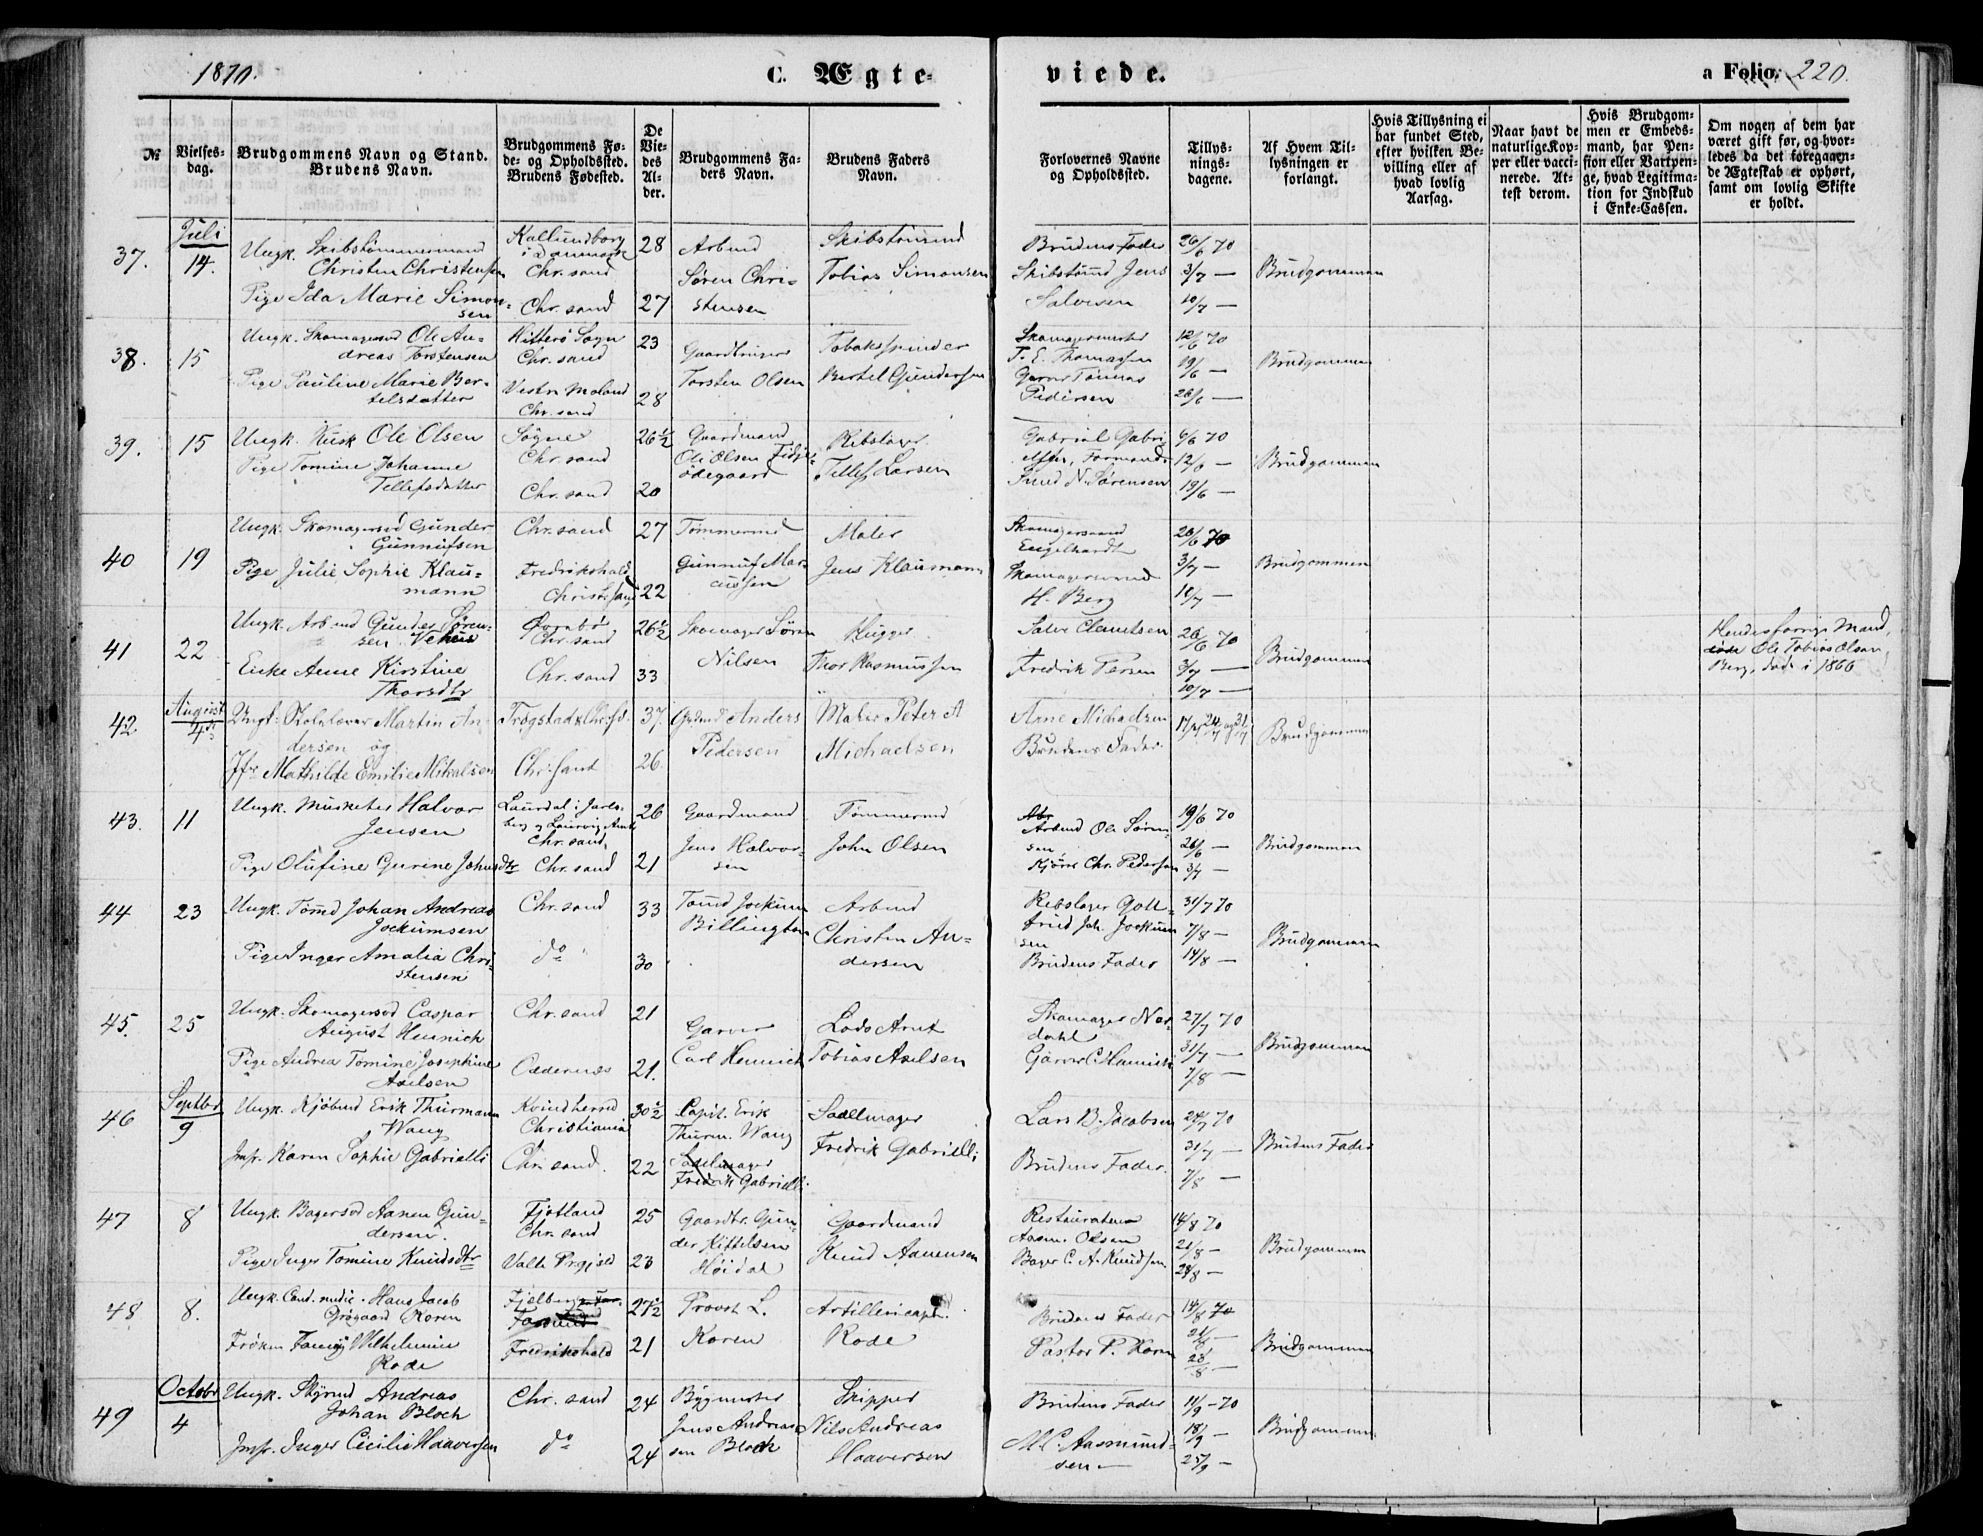 1870.
C. Ægte-
viede.
a Folio. 220.
№
Vielses-
dag.
Brudgommens Navn og Stand.
Brudens Navn.
Brudgommens Fø-
de- og Opholdssted.
Brudens Fødested.
De
Vie-
des
Al-
der.
Brudgommens Fa-
ders Navn.
Brudens Faders
Navn.
Forlovernes Navne
og Opholdssted.
Tillys-
nings-
dagene.
Af Hvem Til-
lysningen er
forlangt.
Hvis Tillysning ei
har fundet Sted,
efter hvilken Be-
villing eller af
hvad lovlig
Aarsag.
Naar havt de
naturlige Kop-
per eller vacci-
nerede. At-
test derom.
Hvis Brudgom-
men er Embeds-
mand, har Pen-
sion eller Vartpen-
ge, hvad Legitima-
tion for Indskud
i Enke-Cassen.
Om nogen af dem har
været gift før, og hvor-
ledes da det foregaaen-
de Ægteskab er ophørt,
samt om lovlig Skifte
er holdt.
37.
Juli
14.
Ungk. Skibstømmermand
Christen Christensen
Pige Ida Marie Simon-
sen
Kallundborg
i Danmark
Chr. sand
Chr. sand
28
27
Arbmd
Søren Chri-
stensen
Skibstømmd
Tobias Simonsen
Brudens Fader
Skibstømd Jens
Salvesen
26/6 70
3/7 —
10/7 —
Brudgommen
38.
15
Ungk. Skomagersvd Ole An-
dreas Torstensen
Pige Pauline Marie Ber-
telsdatter
Hitterø Sogn
Chr. sand
Vestre Moland
Chr. sand
23
28
Gaardbruger
Torsten Olsen
Tobakspinder
Bertel Gundersen
Skomagermester
T. E. Thomassen
Garver Tønnes
Pedersen
12/6 70
19/6 —
26/6 —
Brudgommen
39.
15
Ungk. Kusk Ole Olsen
Pige Tomine Johanne
Tellefsdatter
Søgne
Chr. sand
Chr. sand
26½
20
Gaardmand
Ole Olsen
ødegaard
Rebslager
Tellef Larsen
Gabriel Gabri-
N. Sørensen
6/6 70
12/6 —
19/6 —
Brudgommen
40
19
Ungk. Skomagersvd Gunder
Gunnufsen
Pige Julie Sophie Klau-
mann
Chr. sand
Fredrikshald
Christ. sand
27
22
Tømmermd
Gunnuf Mar-
cussen
Maler
Jens Klaumann
Skomagersvend
Engelhardt
Skomagersvend
H. Berg
26/6 70
3/7 —
10/7 —
Brudgommen
41
22
Ungk. Arbmd Gunder Søren-
sen Vehus
Enke Anne Kirstine
Thorsdtr
Chr. sand
Chr. sand
26½
33
Skomager Søren
Nilsen
Hugger
Thor Rasmussen
Salve Clemetsen
Fredrik Persen
26/6 70
3/7 —
10/7 —
Brudgommen
Hendes forrige Mand,
Ole Tobias Olsen
Berg, døde i 1866
42
August
4de
Ungk. Martin An-
dersen og
Jfr Mathilde Emilie Mikalsen
Trøgstad & Chr. sd.
Chr. sand
37.
26.
Grdmd Anders
Pedersen
Maler Peter A
Michaelsen
Arne Michaelsen
Brudens Fader.
17/7, 24/7 og 31/7
Brudgommen
43.
11
Ungk. Musketer Halvor
Jensen
Pige Olufine Gurine Johnsdtr
Laurdal i Jarls-
berg og Laurvigs Amt
Chr. sand,
Chr. sand
26
21
Gaardmand
Jens Halvor-
sen
Tømmermd
John Olsen
Arbmd Ole Søren-
sen,
Chr. Pedersen
19/6 70
26/6 —
3/7 —
Brudgommen
44
23
Ungk. Tømd Johan Andreas
Jockumsen
Pige Inger Amalia Chri-
stensen
Chr. sand
do
33
30
Tømd Jockum
Billington
Arbmd
Christen An-
dersen
Rebslager Gott-
fried Joh. Jockum
sen
Brudens Fader
31/7 70
7/8 —
14/8 —
Brudgommen
45.
25
Ungk. Skomagersvd Caspar
August Hennich
Pige Andrea Tomine Josephine
Axelsen
Chr. sand
Oddernes
21
21.
Garver
Carl Hennich
Lods Arnt
Tobias Axelsen
Skomager Nor-
dahl
Garver C. Hennich
27/7 70
31/7 —
7/8 —
Brudgommen
46
Septbr
9
Ungk. Kjøbmd Erik Thurmann
Wang
Jmfr. Karen Sophie Gabrielli
Kvindherred
Christiania
Chr. sand.
30½
22
Capit. Erik
Thurm. Wang
Sadelmager
Fredrik Gabrielli
Sadelmager
Fredrik Gabrielli
Lars B. Jacobsen
Brudens Fader.
24/7 70
31/7 —
7/8 —
Brudens Fader
47
8
Ungk. Bagersvd Aanen Gun-
dersen.
Pige Inger Tomine Knudsdtr
Fjotland
Chr. sand
Valle Prgjeld
25
23
Gaardbr. Gun-
der Kittelsen
Høidal
Gaardmand
Knud Aanensen
Restauratør
Aasm. Olsen
Bager C. A. Knudsen
14/8 70
21/8 —
28/8 —
Brudgommen
48
8.
Ungk. Cand. medic. Hans Jacob
Grøgaard Koren
Frøken Fanny Wilhelmine
Rode
Fjelberg
Fredrikshald
27½
21
Provst L.
Koren
Artillericapt.
Rode
Brudens Fader
Pastor P. Koren
14/8 70
21/8 —
28/8 —
Brudgommen
49
Octobr
4
Ungk. Styrmd Andreas
Johan Bloch
Jmfr. Inger Cecilie Haaversen
Chr. sand
do
24
24
Bygmester
Jens Andrea-
sen Bloch
Skipper
Nils Andreas
Haaversen
Brudens Fader
M. C. Aasmund-
sen —
11/9 - 70
18/9 —
25/9 —
Brudgommen